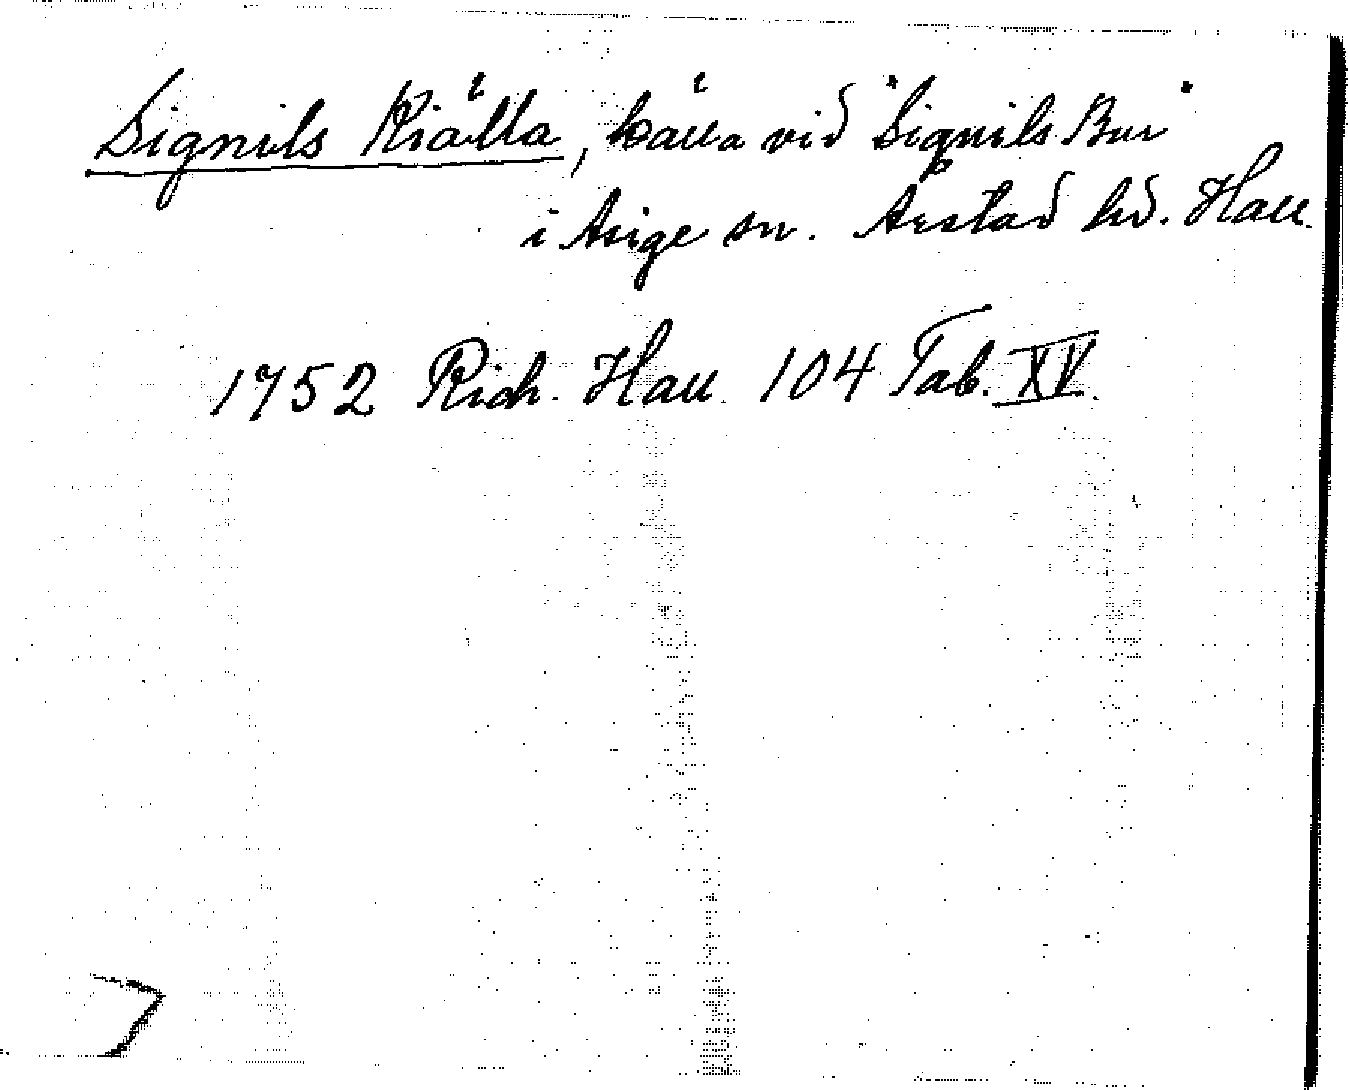 Signils Kiälla, källa vid "Signils Bur"
i Asige sn. Årstad hd. Hall.
1752 Rich. Hall. 104 Tab. XV.